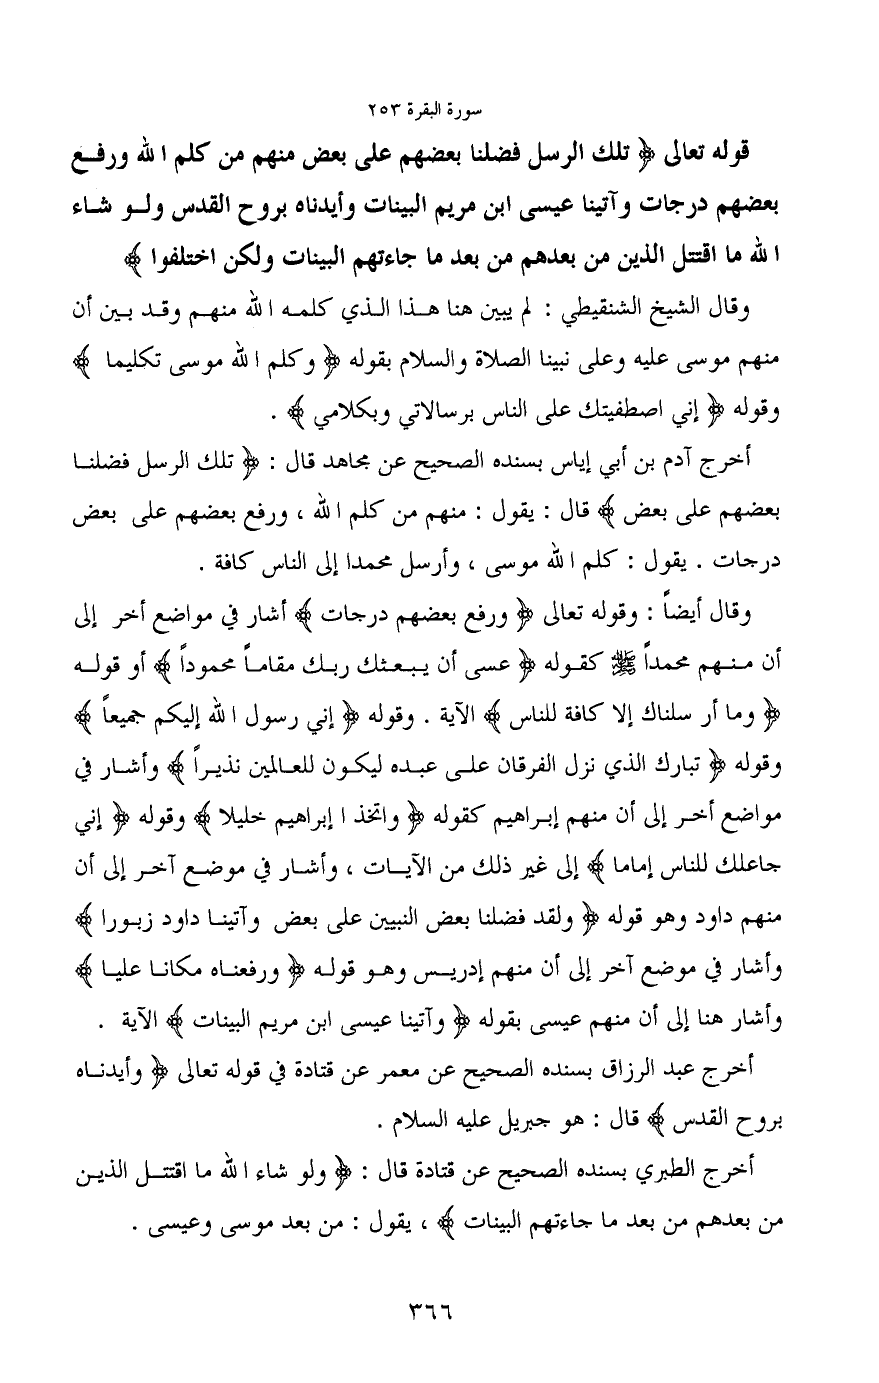 سورة البقرة ٢٥٣
قوله تعالى ﴿ تلك الرسل فضلنا بعضهم على بعض منهم من كلم الله ورفع
بعضهم درجات وآتينا عيسى ابن مريم البينات وأيدناه بروح القدس ولو شاء
الله ما اقتتل الذين من بعدهم من بعد ما جاءتهم البينات ولكن اختلفوا ﴾
وقال الشيخ الشنقيطي : لم يبين هنا هذا الذي كلمه الله منهم وقد بين أن
منهم موسى عليه وعلى نبينا الصلاة والسلام بقوله ﴿ وكلم الله موسى تكليما ﴾
وقوله ﴿ إني اصطفيتك على الناس برسالاتي وبكلامي ﴾ .
أخرج آدم بن أبي إياس بسنده الصحيح عن مجاهد قال : ﴿ تلك الرسل فضلنا
بعضهم على بعض ﴾ قال : يقول : منهم من كلم الله ، ورفع بعضهم على بعض
درجات . يقول : كلم الله موسى ، وأرسل محمدا إلى الناس كافة .
وقال أيضاً : وقوله تعالى ﴿ ورفع بعضهم درجات ﴾ أشار في مواضع أخر إلى
أن منهم محمداً ﷺ كقوله ﴿ عسى أن يبعثك ربك مقاماً محموداً ﴾ أو قوله
﴿ وما أر سلناك إلا كافة للناس ﴾ الآية . وقوله ﴿ إني رسول الله إليكم جميعاً ﴾
وقوله ﴿ تبارك الذي نزل الفرقان على عبده ليكون للعالمين نذيراً ﴾ وأشار في
مواضع أخر إلى أن منهم إبراهيم كقوله ﴿ واتخذ ا إبراهيم خليلا ﴾ وقوله ﴿ إني
جاعلك للناس إماما ﴾ إلى غير ذلك من الآيات ، وأشار في موضع آخر إلى أن
منهم داود وهو قوله ﴿ ولقد فضلنا بعض النبيين على بعض وآتينا داود زبورا ﴾
وأشار في موضع آخر إلى أن منهم إدريس وهو قوله ﴿ ورفعناه مكانا عليا ﴾
وأشار هنا إلى أن منهم عيسى بقوله ﴿ وآتينا عيسى ابن مريم البينات ﴾ الآية .
أخرج عبد الرزاق بسنده الصحيح عن معمر عن قتادة في قوله تعالى ﴿ وأيدناه
بروح القدس ﴾ قال : هو جبريل عليه السلام .
أخرج الطبري بسنده الصحيح عن قتادة قال : ﴿ ولو شاء الله ما اقتتل الذين
من بعدهم من بعد ما جاءتهم البينات ﴾ ، يقول : من بعد موسى وعيسى .
٣٦٦